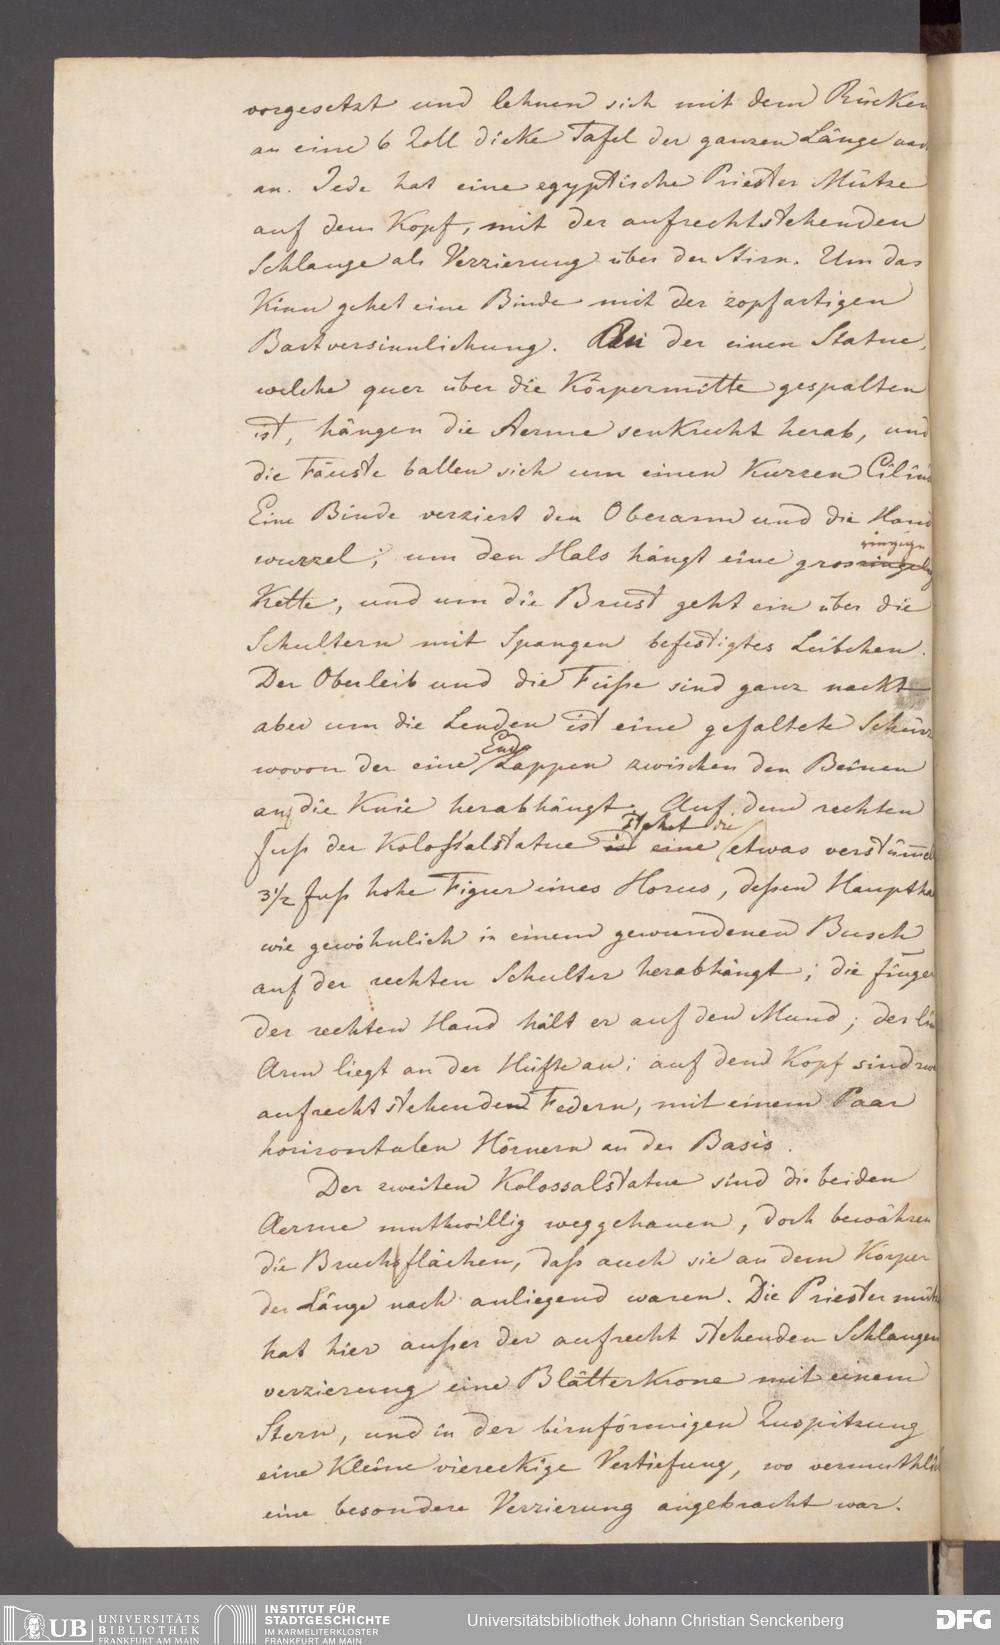 vorgesetzt und lehnen sich mit dem Rücken
an eine 6 Zoll dicke Tafel der ganzen Länge nach
an. Jede hat eine egyptische Priester Mütze
auf dem Kopf, mit der aufrechtstehenden
Schlange als Verzierung über der Stirn. Um das
Kinn gehet eine Binde mit der zopfartigen
Bartversinnlichung. An der einen Statue,
welche quer über die Körpermitte gespalten
ist, hängen die Aerme senkrecht herab, und
die Fäuste ballen sich um einen kurzen Cilin
Eine Binde verziert den Oberarm und die Hand
wurzel; um den Hals hängt eine gros
Kette, und um die Brust geht ein über die
Schultern mit Spangen befestigtes Leibchen.
Der Oberleib und die Füsse sind ganz nackt
aber um die Lenden ist eine gefaltete Schürz
Ende
wovon der eine Lappen zwischen den Beinen
an die Knie herabhängt. Auf dem rechten
stehet die
fuß der Koloßalstatue ist eine etwas verstümel
3 1/2 fuß hohe Figur eines Horus, deßen Hauptha
wie gewöhnlich in einem gewundenen Busch
auf der rechten Schulter herabhängt; die finge
der rechten Hand hält er auf den Mund; der lin
Arm liegt an der Hüfte an; auf dem Kopf sind zw
aufrecht stehenden Federn, mit einem Paar
horizontalen Hörnern an der Basis.
Der zweiten Kolossalstatue sind die beiden
Aerme muthwillig weggehauen, doch bewähren
die Bruchsflächen, daß auch sie an dem Körper
der Länge nach anliegend waren. Die Priestermütz
hat hier außer der aufrecht stehenden Schlangen
verzierung eine Blätterkrone mit einem
Stern, und in der birnförmigen Zuspitzung
eine kleine viereckige Vertiefung, wo vermuthlich
eine besondere Verzierung angebracht war.
UB UNIVERSITÄTS
BIBLIOTHEK
FRANKFURT AM MAIN
INSTITUT FÜR
STADTGESCHICHTE
IM KARMELITERKLOSTER
FRANKFURT AM MAIN
Universitätsbibliothek Johann Christian Senckenberg
DFG